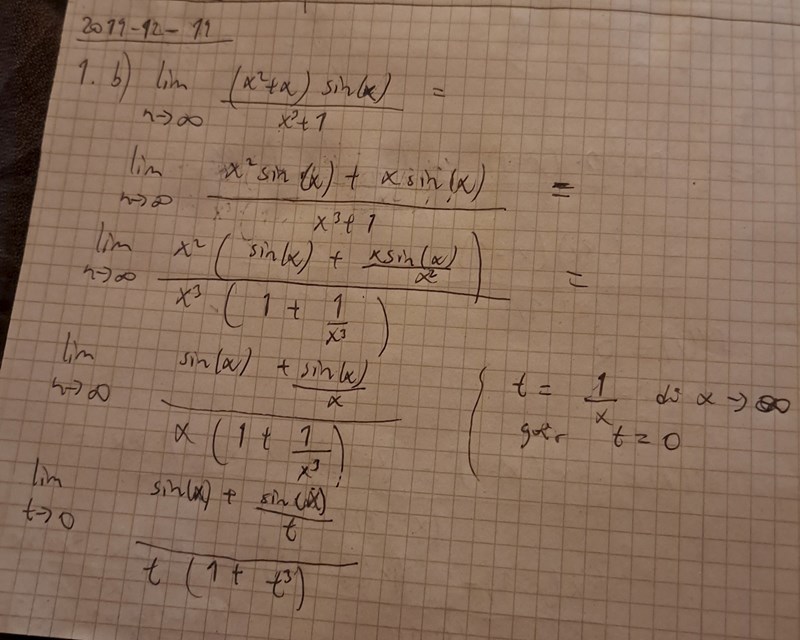 2019-12-19
1. b) lim n→∞ (x²+x) sin(x) / x³+1 =
lim n→∞ x² sin(x) + x sin(x) / x³+1 =
lim n→∞ x² ( sin(x) + x sin(x)/x² ) / x³ ( 1 + 1/x³ ) =
lim n→∞ sin(x) + sin(x)/x / x ( 1 + 1/x³ )
{ t = 1/x då x → ∞
går t = 0
lim t→0 sin(x) + sin(x)/t / t ( 1 + t³ )